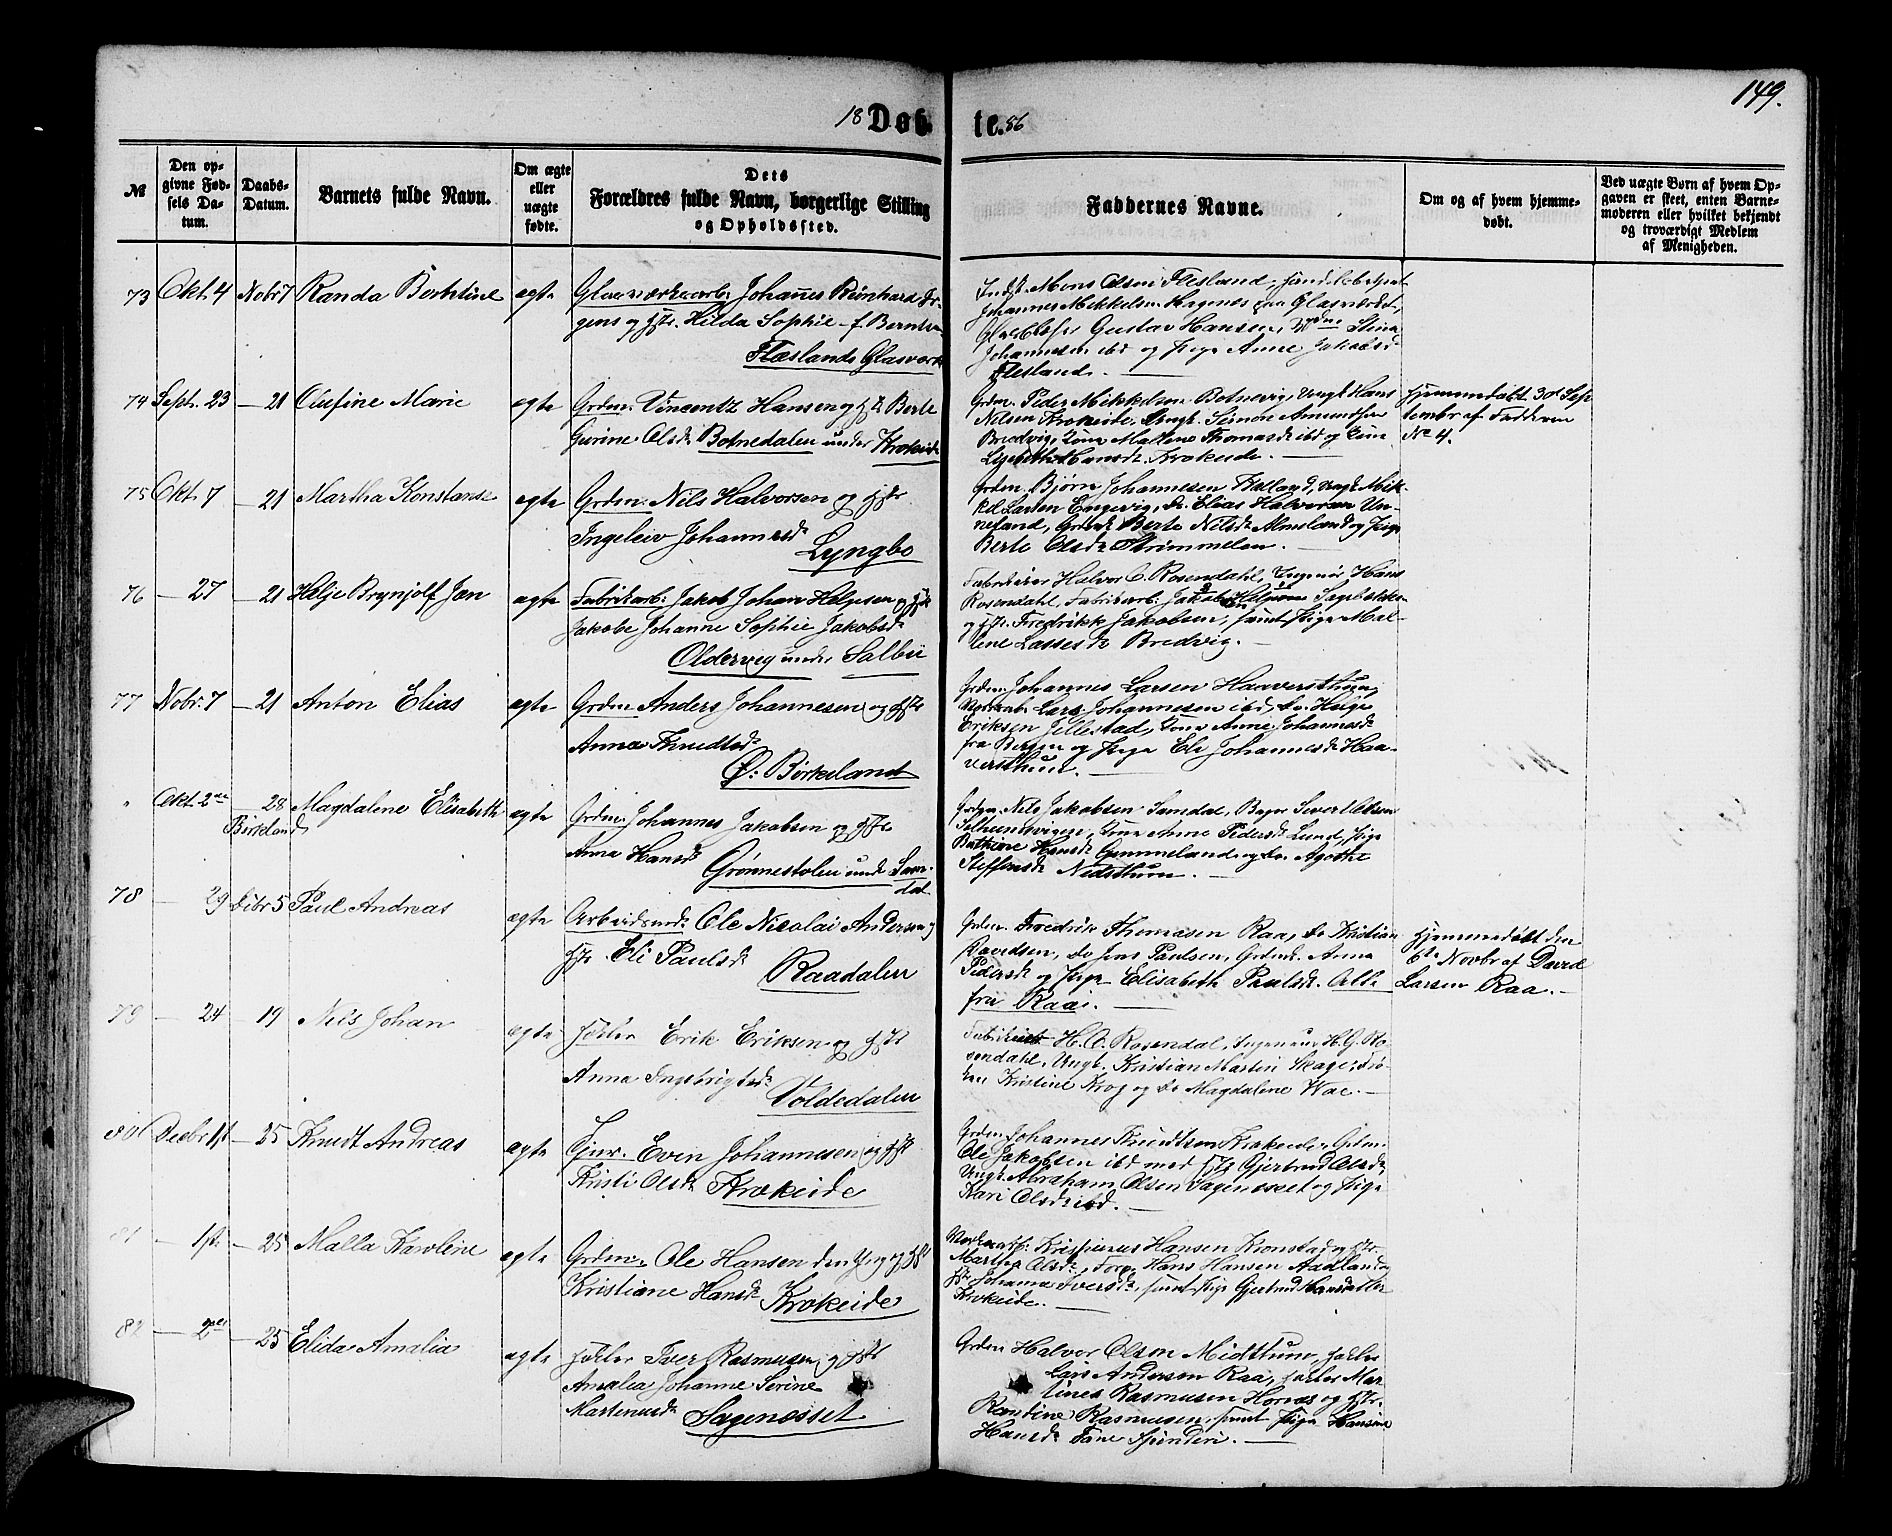 149.
18 Døb- te. 86
№
Den opgivne Fødsels Datum.
Daabs-Datum.
Barnets fulde Navn.
Om ægte eller uægte fødte.
Dets Forældres fulde Navn, borgerlige Stilling og Opholdssted.
Faddernes Navne.
Om og af hvem hjemmedøbt.
Ved uægte Børn af hvem Opgaven er skeet, enten Barnemoderen eller hvilket bekjendt og troværdigt Medlem af Menigheden.
73 Okt. 4 Nobr 7 Randa Berntine ægte Glasværksarb: Johannes Bernhard Jør-
gens og Hst. Hilda Sophie f. Berntsen
Flæslands Glasværk
Indst. Mons Olsen Flesland, Handelsbetjent
Johannes Mikkelsen Hagenes paa Glasværket,
Gustav Hansen, Stina
Johannesen ibd og Pige Anne Jakobsd.
Flesland. —
74 Sept. 23 — 21 Olufine Marie ægte Grdm. Vincentz Hansen og H. Berte
Gurine Olsd. Botnedalen under Krokeide
Grdm. Peder Mikkelsen Botnevig, Ungk. Hans
Nilsen Krokeide, Ungk. Simon Amundsen
Bredvig, Kone Malene Thomasd. ibd og Kone
Lisbeth Hansd. Krokeide. —
Hjemmedøbt 30t Sep-
tembr af Fadderen
No 4.
75 Okt. 7 — 21 Martha Konstanse ægte Grdm. Nils Halvorsen og Hst.
Ingeleiv Johannesd.
Lyngbo
Grdm. Bjørn Johannesen Tveland, Ungk. Mik-
kel Larsen Engevig, Do. Elias Halvorsen Un-
neland, Grdmk. Berte Nilsd. Almeland og Pige
Berte Olsd. Strimmelen. —
76 — 27 — 21 Helje Brynjolf Jan ægte Fabrikarb: Jakob Johan Heljesen og Hst.
Jakobe Johanne Sophie Jakobsd.
Oldervig under Salbu
Fabrikeier Halvor O. Rosendahl, Ingeniør Hans
Rosendahl, Fabrikarb: Jakob Heljesen Sagebakken
og Hst. Fredrikk Jakobsen, samt Pige Mal-
lene Lassesd. Bredvig. —
77 Nobr. 7 — 21 Anton Elias ægte Grdm. Anders Johannesen og Hst.
Anna Knudtsd.
Ø: Birkeland
Grdm. Johannes Larsen Haaversthun,
Lars Johannesen ibd, Do Helge
Eriksen Jellestad, Kone Anne Johannesd.
fra Bergen og Pige Eli Johannesd. Haa-
versthun. —
" Okt. 2den — 28 Magdalene Elisabeth ægte Grdm. Johannes Jakobsen og Hst.
Birkland
Anna Hansd.
Grønnestølen under Sam-
dal
Grdm. Nils Jakobsen Samdal, Bager Sivert Olsen
Kone Anne Pedersd. Lund, Pige
Hansd. Grimmeland og Do. Agothe
Steffensd. Nedsthun. —
78 — 29 Debr 5 Paul Andreas ægte Arbeidsmd: Ole Nicolai Andersen og
Hst. Eli Paulsd.
Raadalen
Grdm. Fredrik Thomasen Raa, Do Kristian
Davidsen, Do Jens Paulsen, Grdmk. Anna
Pedersd. og Pige Elisabeth Paulsd. Alle
fra Raa. —
Hjemmedøbt den
6te Novbr af David
Larsen Raa. —
79 — 24 — 19 Nils Johan ægte Føder Erik Eriksen og Hst.
Anna Ingebrigtsd.
Voldedalen
Fabrikeier H. O. Rosendal, Ingeniør H. G. Ro-
sendahl, Ungk. Kristian Martin Skage, Frø-
ken Kristine Krog og Do Magdalene Wae. —
80 Decbr 1st — 25 Knudt Andreas ægte Even Johannesen og Hst.
Kristi Olsd. Krokeide
Grdm. Johannes Knudtsen Krokeide, Grdm.
Ole Jakobsen ibd med Hst. Gjertrud Olsd.
Ungk. Abraham Olsen Sagenesset og Pige
Kari Olsd. ibd. —
81 — 1ste — 25 Malla Karoline ægte Grdm. Ole Hansen den Y. og Hst.
Kristiane Hansd. Krokeide
Kristianus Hansen Kronstad og Hst.
Martha Olsd., Forp. Hans Hansen Aadland og
Hst. Johanna Iversd., samt Pige Gjertrud Hansdatter
Krokeide. —
82 — 2den — 25 Elida Amalia ægte Iver Rasmusen og Hst.
Amalia Johanne Serine
Martinusd. Sagenesset
Grdm. Halvor Olson Midtthun,
Lars Andersen Raa, Mar-
tines Rasmusen Hornæs og Hst.
Randine Rasmusen, samt Pige Hansine
Hansd. Fane Spinderi. —